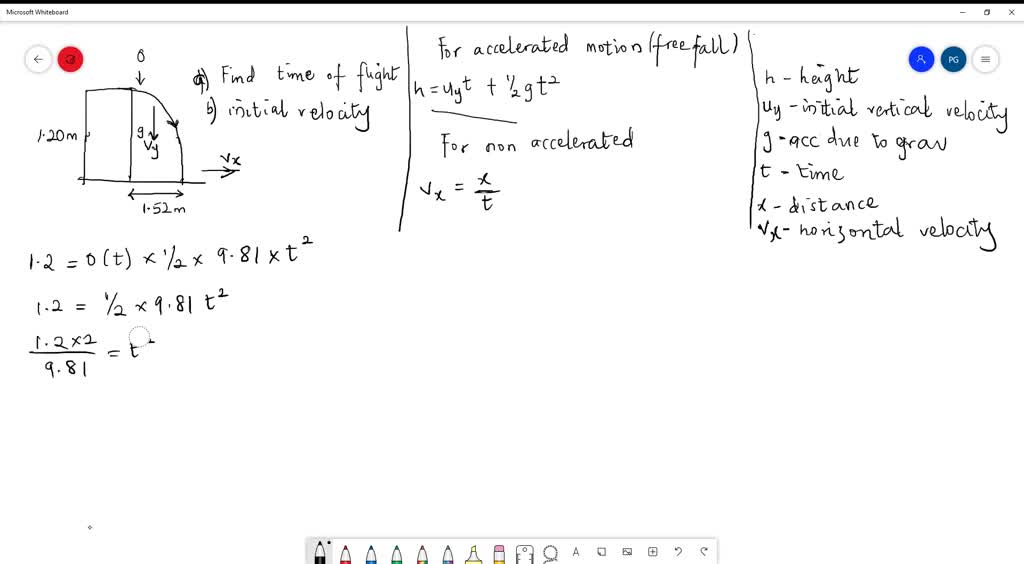 Microsoft Whiteboard
PG
0
1.20m
g
Vy
Vx
1.52m
a) Find time of flight
b) initial velocity
For accelerated motion (free fall)
h = uyt + 1/2 gt²
For non accelerated
Vx = x/t
h - height
uy - initial vertical velocity
g - acc due to grav
t - time
x - distance
Vx - horizontal velocity
1.2 = 0(t) × 1/2 × 9.81 × t²
1.2 = 1/2 × 9.81 t²
1.2×2/9.81 = t
A